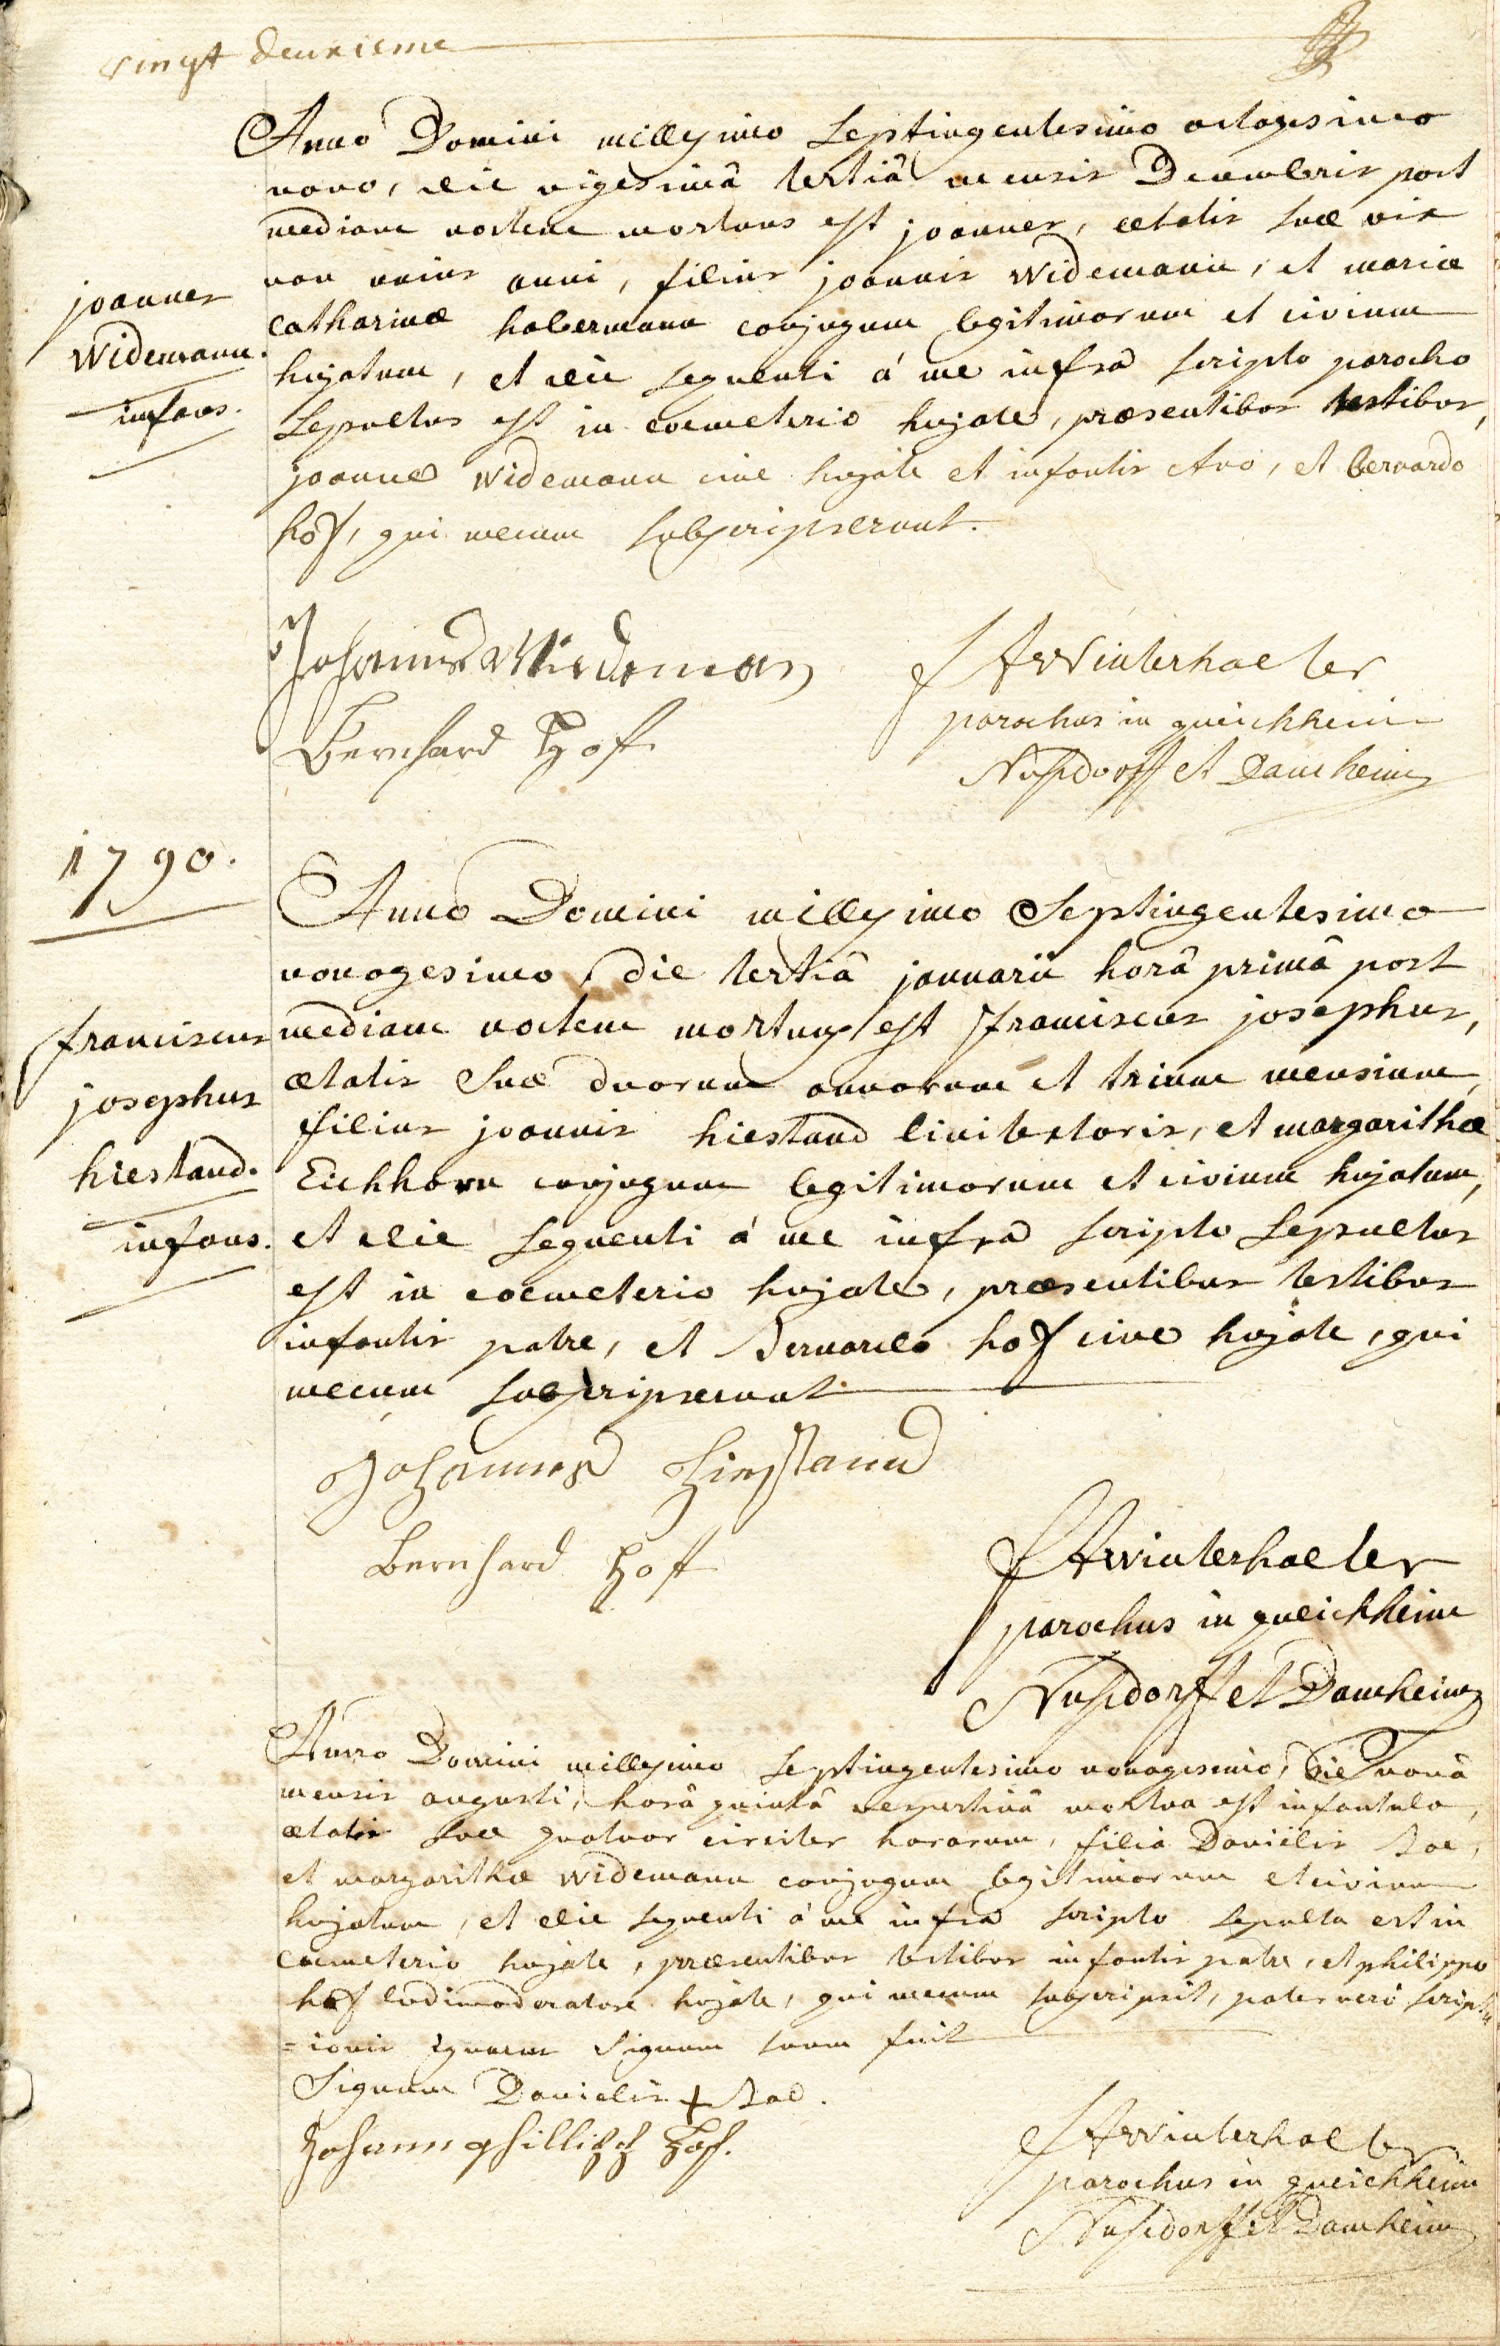 vingt deuxieme
Anno Domini millesimo Septingentesimo octogesimo
nono, die vigesimâ tertiâ mensis Decembris post
mediam noctem mortuus est joannes, ætatis suæ vix
non unius anni, filius joannis Widemann, et mariæ
joannes
Widemann.
infans.
catharinæ habermann conjugum legitimorum et civium
hujatum, et die sequenti á me infrâ scripto parocho
Sepultus est in coemeterio hujate, præsentibus testibus,
joanne Widemann cive hujate et infantis Avo, et bernardo
hof, qui mecum subscripserunt.
Johannes Wiedeman
Bernhard Hof
FAWinterhalter
parochus in queichheim
Nusdorff et Damheim
1790.
Anno Domini millesimo Septingentesimo
nonagesimo, die tertiâ januarii horâ primâ post
mediam noctem mortuus est franciscus josephus,
franciscus
josephus
hiestand.
infans.
ætatis Suæ duorum annorum et trium mensium,
filius joannis hiestand linitextoris, et margarithæ
Eichhorn conjugum legitimorum et civium hujatum,
et die sequenti á me infrâ scripto Sepultus
est in coemeterio hujate, præsentibus testibus
infantis patre, et Bernardo hof cive hujate, qui
mecum subscripserunt.
Johannes Hiestand
Bernhard Hof
FAWinterhalter
parochus in queichheim
Nusdorff et Damheim
Anno Domini millesimo Septingentesimo nonagesimo, die nonâ
mensis augusti, horâ quintâ vespertinâ mortua est infantula,
ætatis suæ quatuor circiter horarum, filia Daniëlis
et margarithæ Widemann conjugum legitimorum et civium
hujatum, et die sequenti á me infrâ scripto sepulta est in
coemeterio hujate, præsentibus testibus infantis patre, et philippo
hof ludimoderatore hujate, qui mecum subscripsit, pater vero script
=ionis ignarus Signum suum fecit
Signum Danielis +
Johann Phillipp Hof.
FAWinterhalter
parochus in queichheim
Nusdorff et Damheim